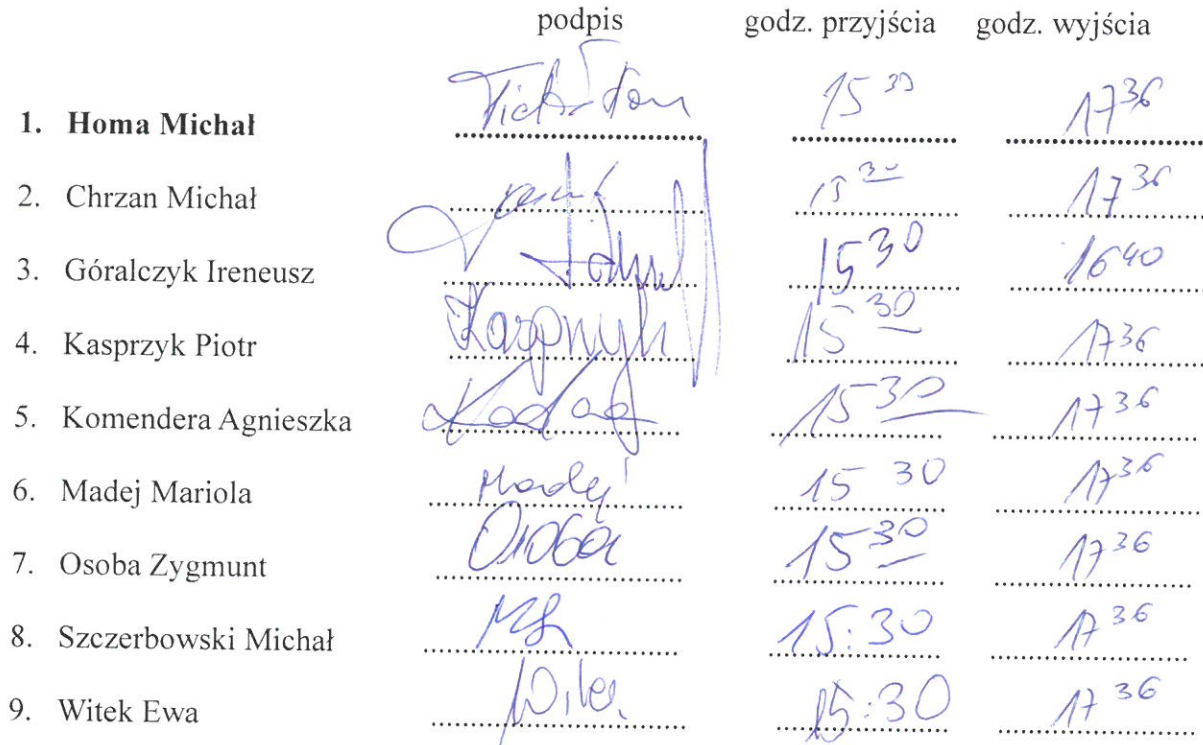 podpis godz. przyjścia godz. wyjścia
1. Homa Michał 15 30 17 36
2. Chrzan Michał 15 30 17 36
3. Góralczyk Ireneusz 15 30 16 40
4. Kasprzyk Piotr Kasprzyk 15 30 17 36
5. Komendera Agnieszka 15 30 17 36
6. Madej Mariola Madej 15 30 17 36
7. Osoba Zygmunt Osoba 15 30 17 36
8. Szczerbowski Michał 15:30 17 36
9. Witek Ewa Witek 15:30 17 36